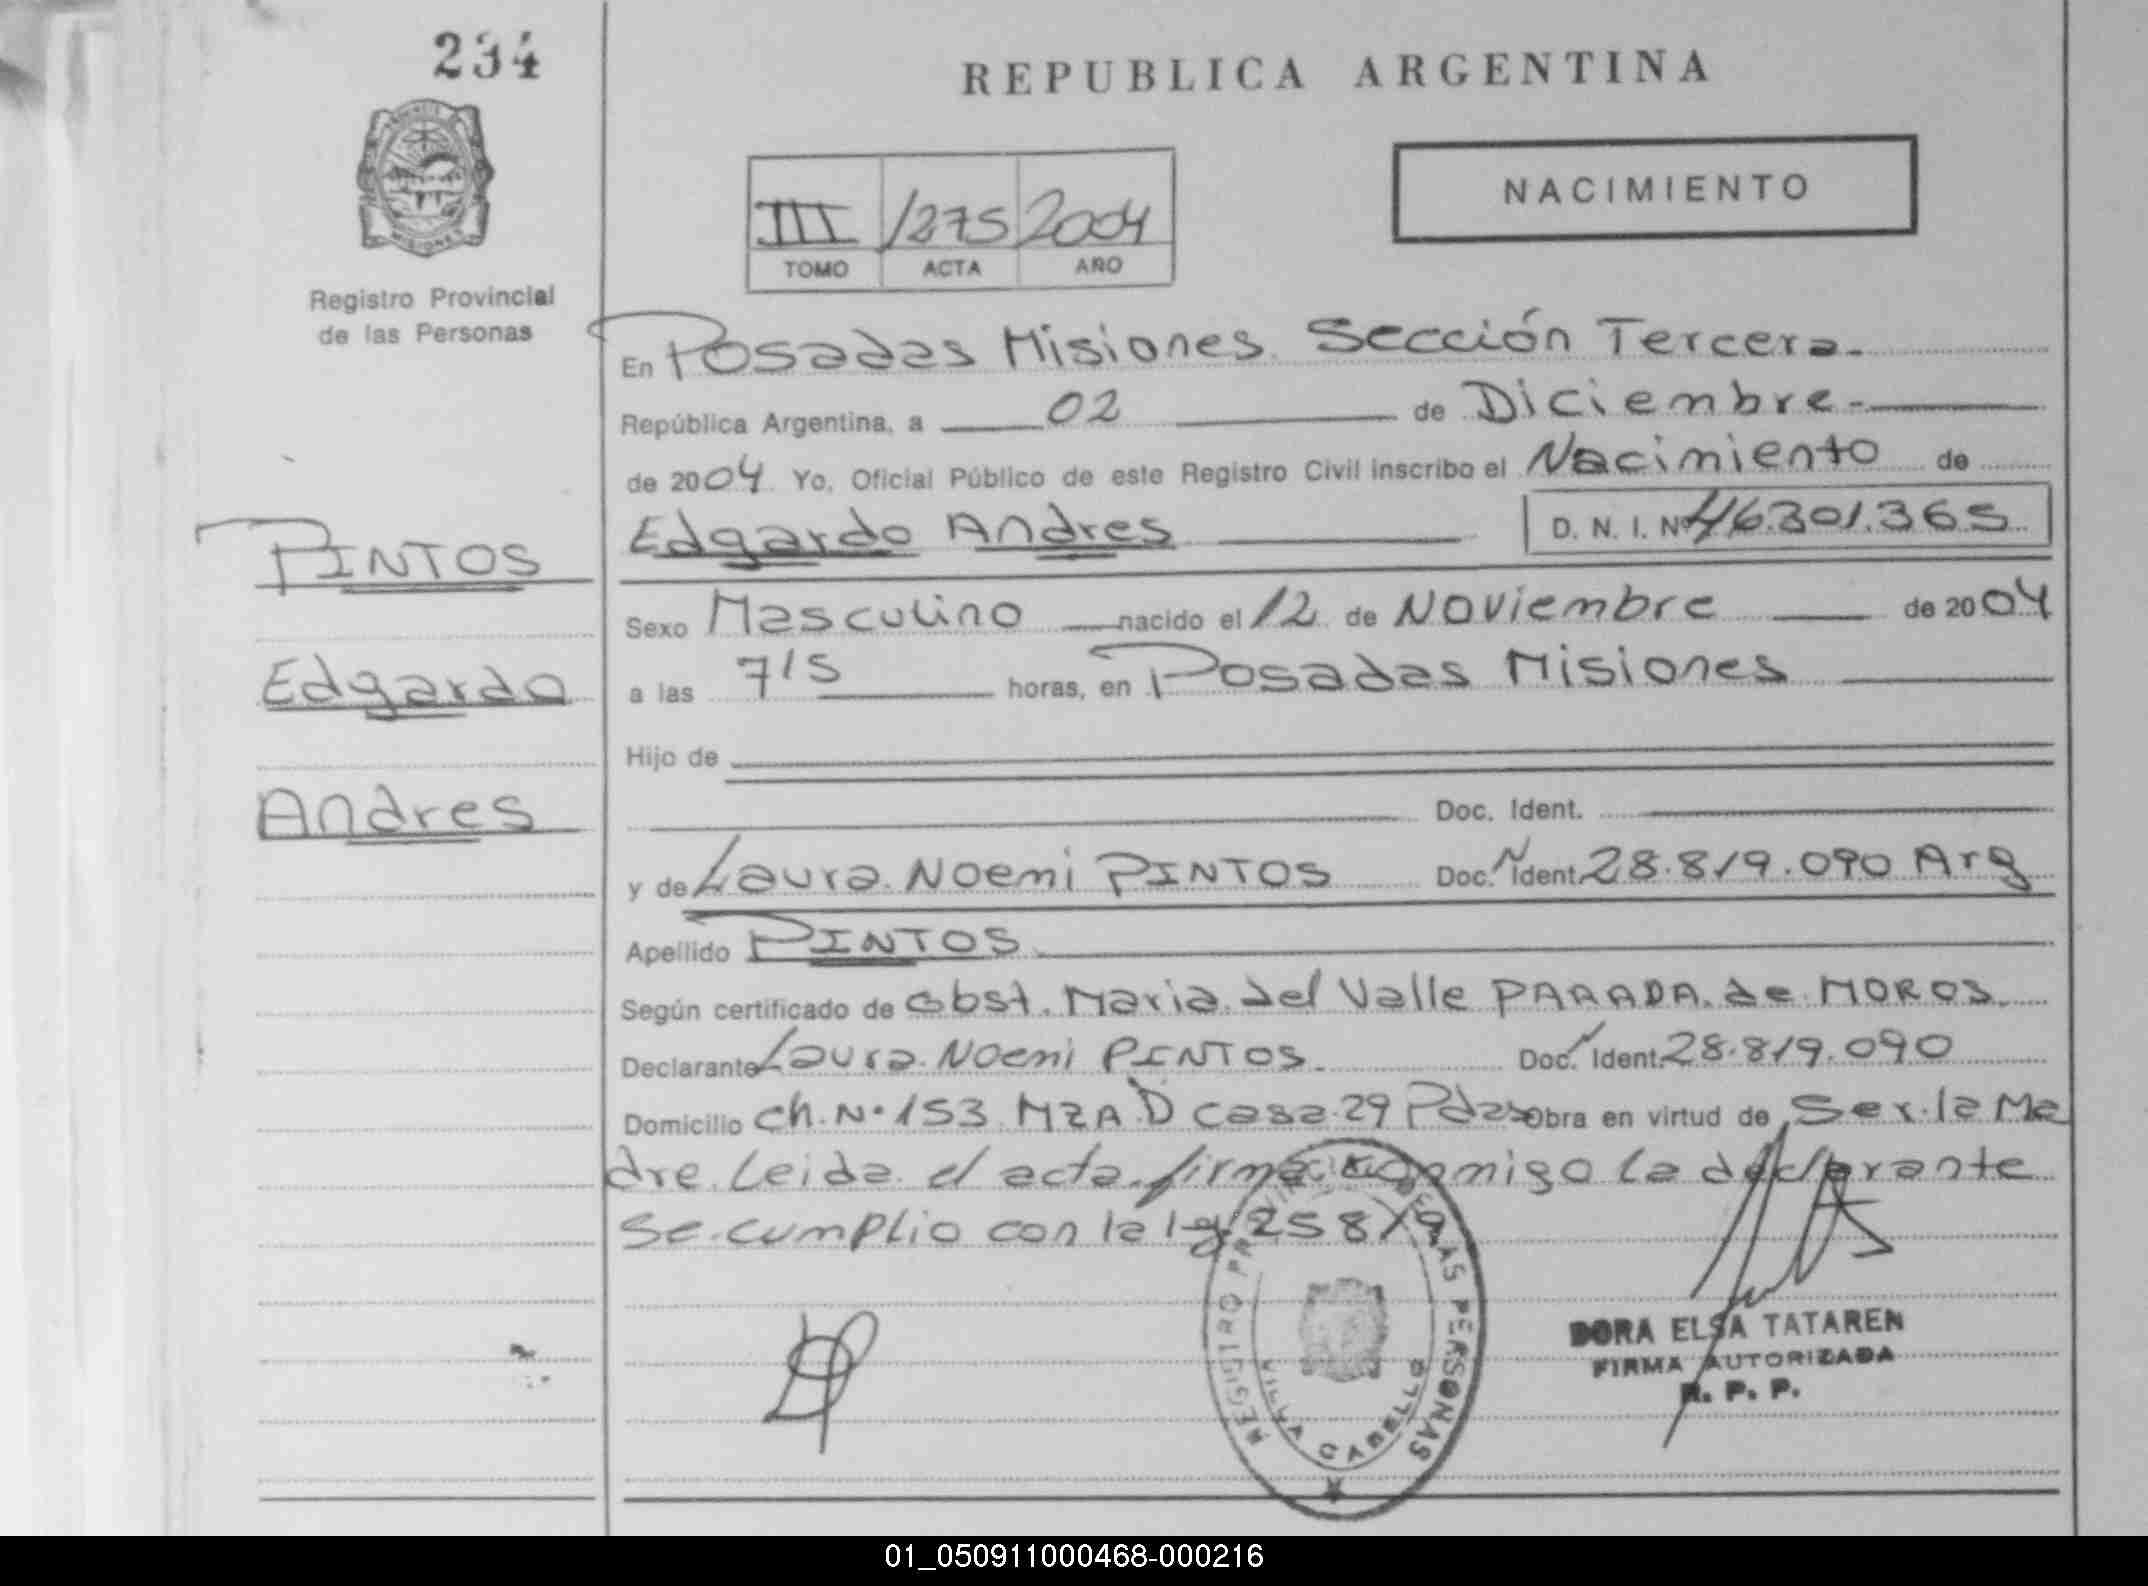 234
REPUBLICA ARGENTINA
NACIMIENTO
III 1275 2004
TOMO ACTA AÑO
MISIONES
Registro Provincial
de las Personas
En Posadas Misiones Sección Tercera.
República Argentina, a 02 de Diciembre.
de 2004 Yo, Oficial Público de este Registro Civil inscribo el Nacimiento de
Edgardo Andres D. N. I. Nº 46.301.365
PINTOS
Edgardo
Andres
Sexo Masculino nacido el 12 de Noviembre de 2004
a las 715 horas, en Posadas Misiones
Hijo de
Doc. Ident.
y de Laura Noemi PINTOS Doc. Ident. 28.819.090 Arg
Apellido PINTOS
Según certificado de Obst. Maria del Valle PARADA de MOROS
Declarante Laura Noemi PINTOS Doc. Ident. 28.819.090
Domicilio Ch. Nº 153 MZA D Casa 29 Pdas Obra en virtud de Ser la Ma
dre Leida el acta firma conmigo la declarante
Se cumplio con la ley 25819
REGISTRO PROVINCIAL DE LAS PERSONAS
VILLA CABELLO
DORA ELSA TATAREN
FIRMA AUTORIZADA
R. P. P.
01_050911000468-000216